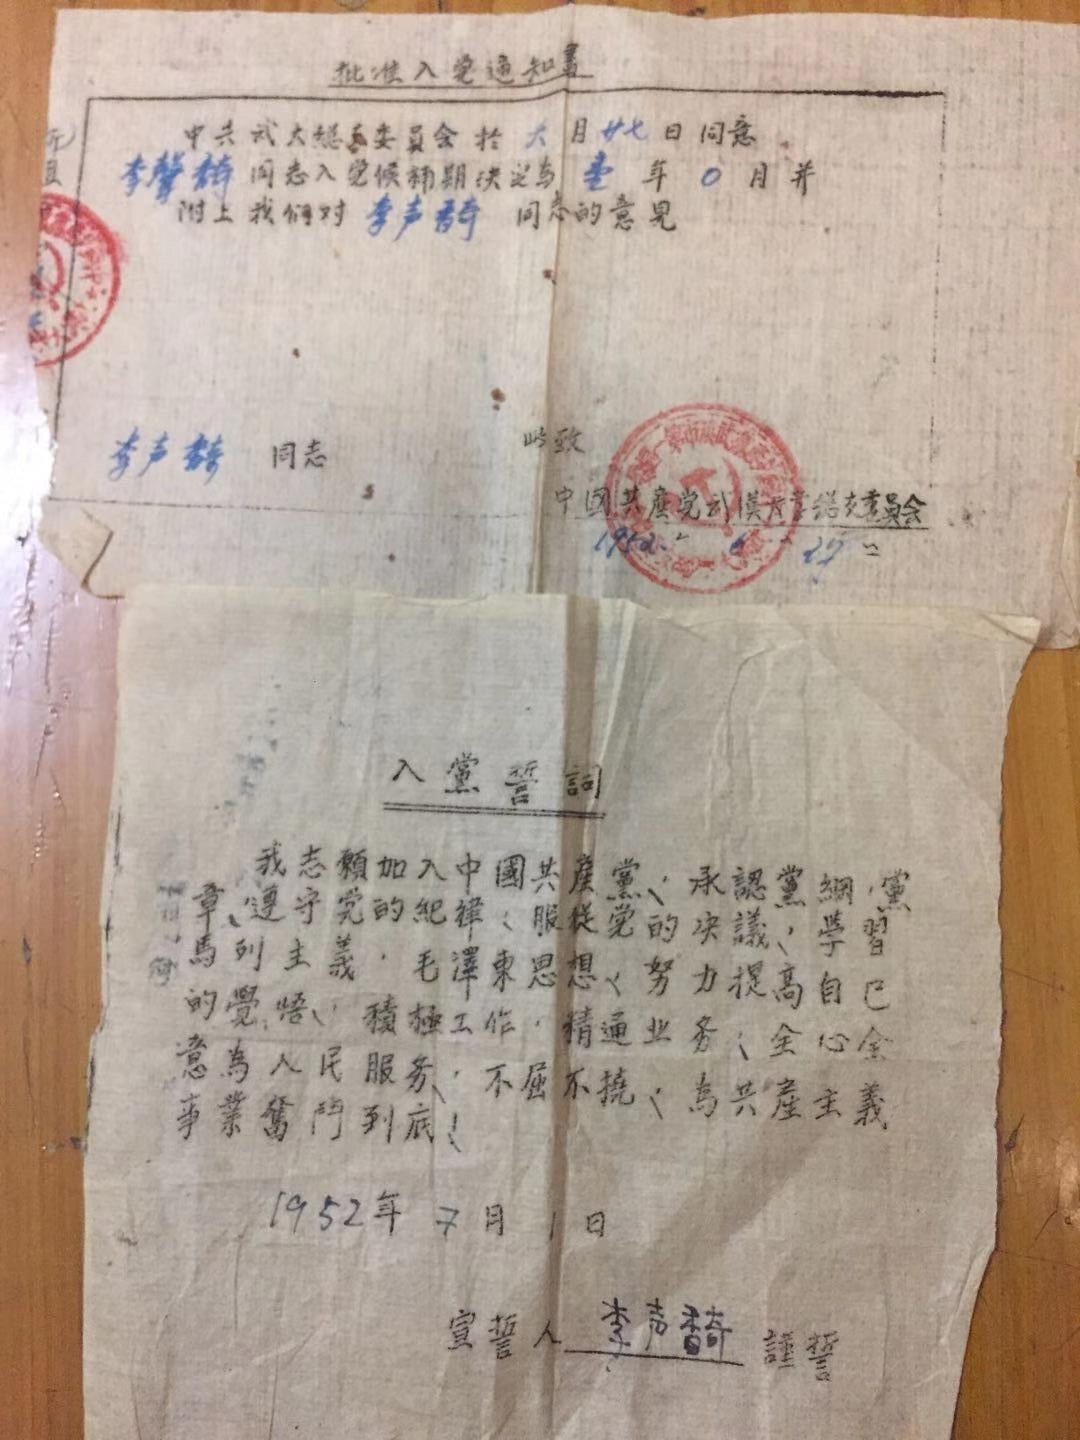 批准入党通知書
中共武大總支委員会於 六月廿七日同意
李馨䭲同志入党候補期决定為 壹 年 0 月并
附上我们对 李声䭲 同志的意見
此致
李声䭲 同志
中國共産党武漢大学總支委員会
1952 6 27
入黨誓詞
我志願加入中國共産黨、承認黨綱，黨
章、遵守党的紀律、服従党的决議、學習
馬列主義，毛澤東思想、努力提高自己
的覺悟、積極工作，精通业务、全心全
意為人民服务、不屈不撓、為共産主義
事業奮鬥到底！
1952年 7月 1日
宣誓人 李声䭲 謹誓